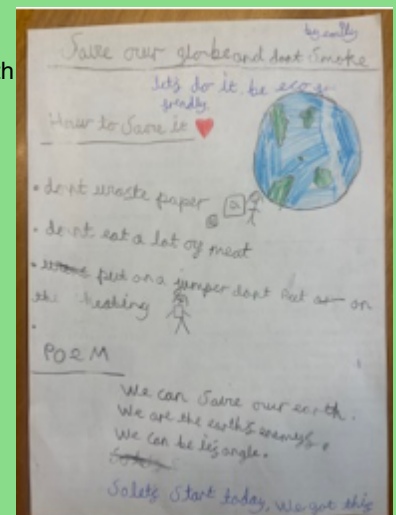 th
by emily
Save our globe and dont Smoke
lets do it. be eco
frendly.
How to Save it
• dont waste paper
• dont eat a lot of meat
• put on a jumper dont put on
the heating
•
POEM
We can Save our earth.
We are the earths enemys.
We can be its angle.
So lets Start today, We got this